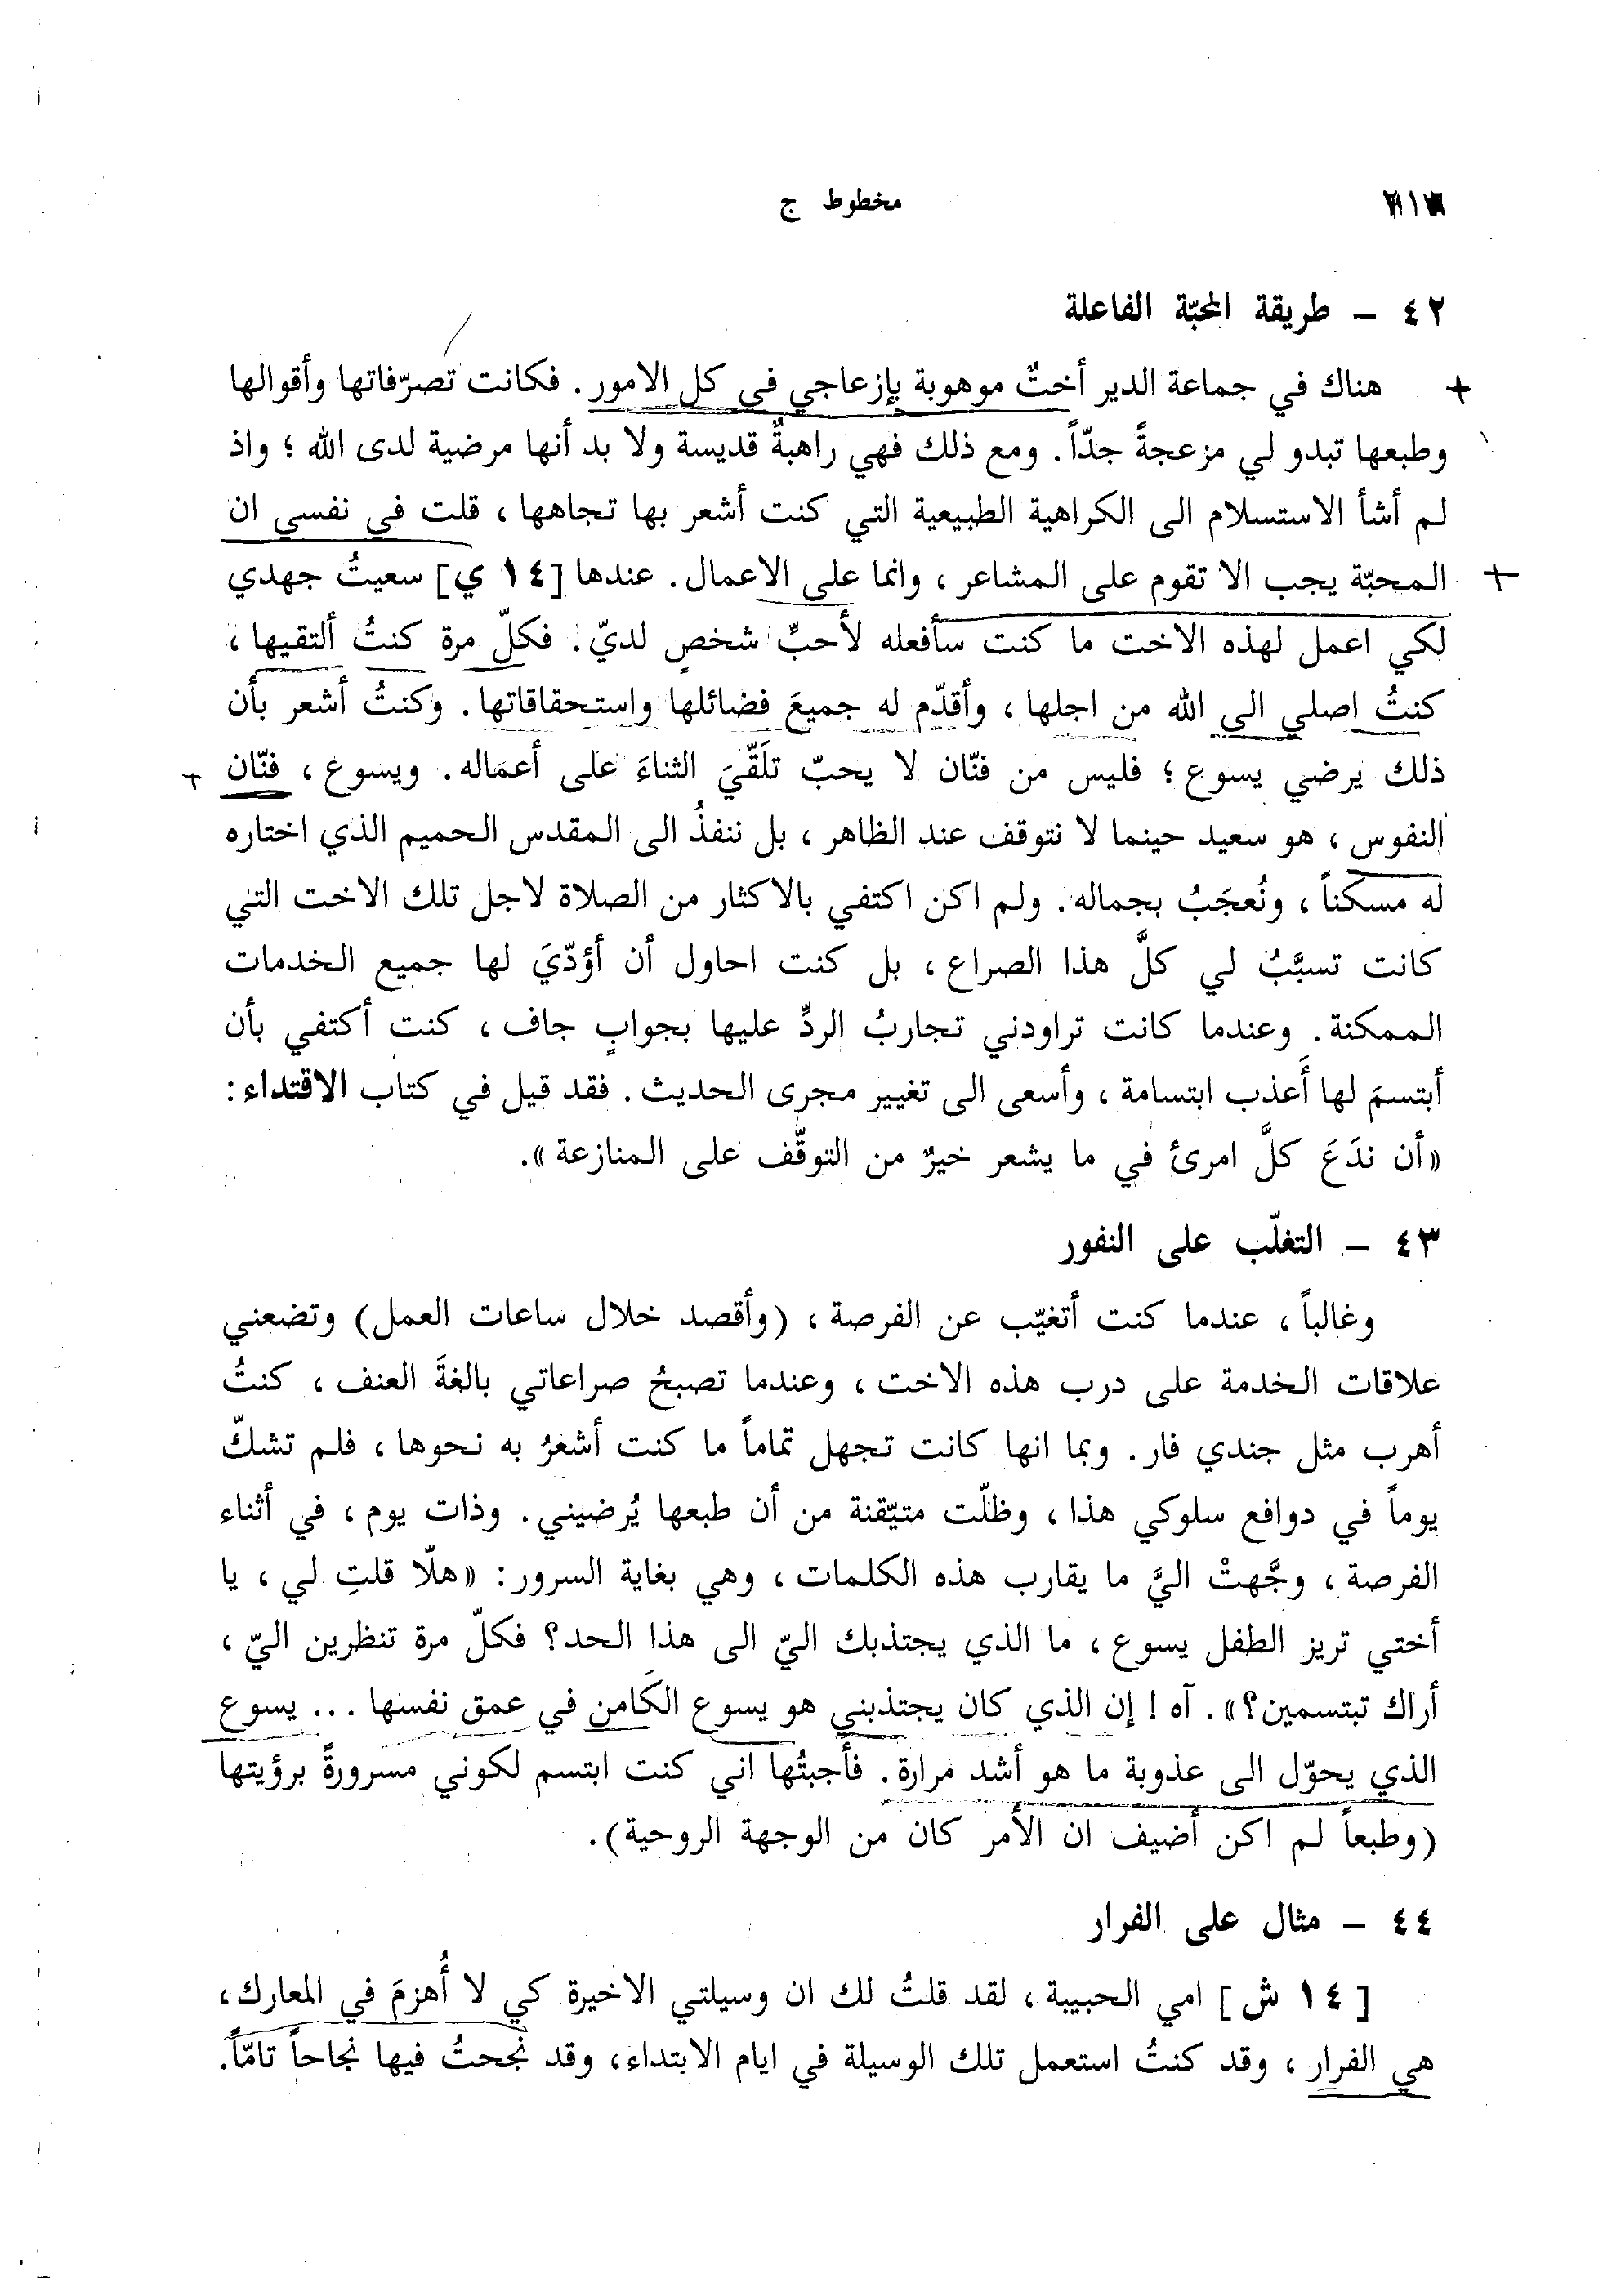 مخطوط ج
٤٢ – طريقة المحبّة الفاعلة
هناك في جماعة الدير أختٌ موهوبة بإزعاجي في كل الامور. فكانت تصرّفاتها وأقوالها
وطبعها تبدو لي مزعجةً جدّاً. ومع ذلك فهي راهبةٌ قديسة ولا بد أنها مرضية لدى الله ؛ واذ
لم أشأ الاستسلام الى الكراهية الطبيعية التي كنت أشعر بها تجاهها ، قلت في نفسي ان
المحبّة يجب الا تقوم على المشاعر ، وانما على الاعمال. عندها [١٤ ي] سعيتُ جهدي
لكي اعمل لهذه الاخت ما كنت سأفعله لأحبِّ شخصٍ لديّ. فكلّ مرة كنتُ ألتقيها ،
كنتُ اصلي الى الله من اجلها ، وأقدّم له جميعَ فضائلها واستحقاقاتها. وكنتُ أشعر بأن
ذلك يرضي يسوع ؛ فليس من فنّان لا يحبّ تلَقّيَ الثناءَ على أعماله. ويسوع ، فنّان
النفوس ، هو سعيد حينما لا نتوقف عند الظاهر ، بل ننفذُ الى المقدس الحميم الذي اختاره
له مسكناً ، ونُعجَبُ بجماله. ولم اكن اكتفي بالاكثار من الصلاة لاجل تلك الاخت التي
كانت تسبَّبُ لي كلَّ هذا الصراع ، بل كنت احاول أن أؤدّيَ لها جميع الخدمات
الممكنة. وعندما كانت تراودني تجاربُ الردِّ عليها بجوابٍ جاف ، كنت أكتفي بأن
أبتسمَ لها أَعذب ابتسامة ، وأسعى الى تغيير مجرى الحديث. فقد قيل في كتاب الاقتداء :
«أن ندَعَ كلَّ امرئ في ما يشعر خيرٌ من التوقّف على المنازعة».
٤٣ – التغلّب على النفور
وغالباً ، عندما كنت أتغيّب عن الفرصة ، (وأقصد خلال ساعات العمل) وتضعني
علاقات الخدمة على درب هذه الاخت ، وعندما تصبحُ صراعاتي بالغةَ العنف ، كنتُ
أهرب مثل جندي فار. وبما انها كانت تجهل تماماً ما كنت أشعرُ به نحوها ، فلم تشكّ
يوماً في دوافع سلوكي هذا ، وظلّت متيّقنة من أن طبعها يُرضيني. وذات يوم ، في أثناء
الفرصة ، وجَّهتْ اليَّ ما يقارب هذه الكلمات ، وهي بغاية السرور: «هلّا قلتِ لي ، يا
أختي تريز الطفل يسوع ، ما الذي يجتذبك اليّ الى هذا الحد؟ فكلّ مرة تنظرين اليّ ،
أراك تبتسمين؟». آه ! إن الذي كان يجتذبني هو يسوع الكَامن في عمق نفسها ... يسوع
الذي يحوّل الى عذوبة ما هو أشد مرارة. فأجبتُها اني كنت ابتسم لكوني مسرورةً برؤيتها
(وطبعاً لم اكن أضيف ان الأمر كان من الوجهة الروحية).
٤٤ – مثال على الفرار
[١٤ ش] امي الحبيبة ، لقد قلتُ لك ان وسيلتي الاخيرة كي لا أُهزمَ في المعارك ،
هي الفرار ، وقد كنتُ استعمل تلك الوسيلة في ايام الابتداء، وقد نجحتُ فيها نجاحاً تامّاً.